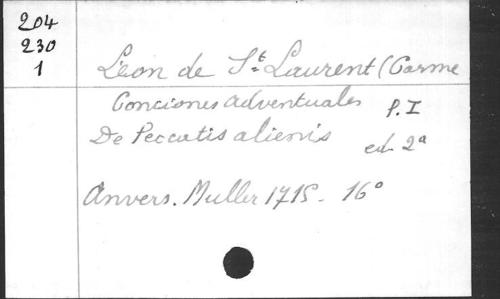 204
230
1
Léon de St Laurent (Carme
Conciones adventuales P. I
De Peccatis alienis ed 2a
Anvers. Muller 1715 - 16°